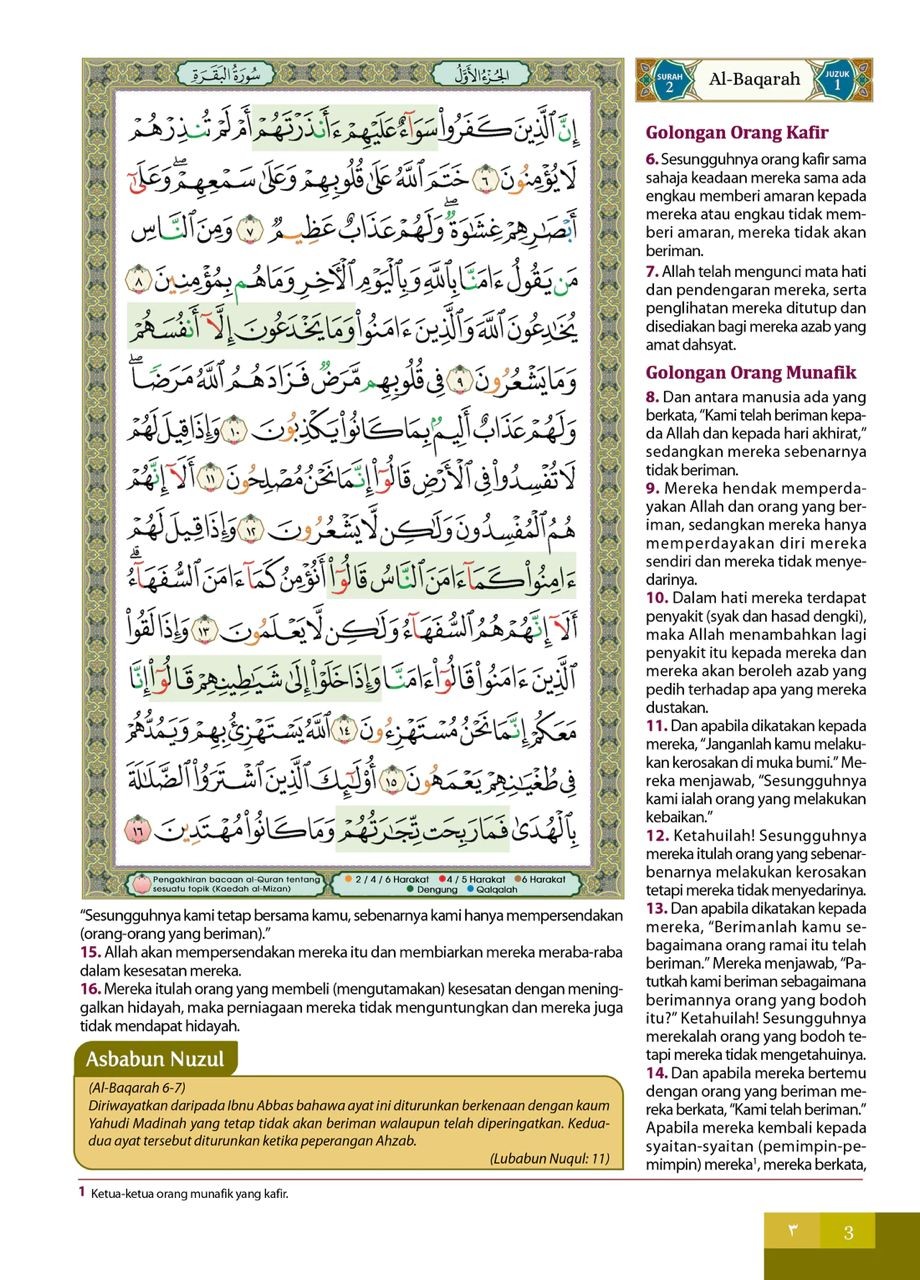 سُورَةُ البَقَرَةِ
الجُزْءُ الأَوَّلُ
إِنَّ ٱلَّذِينَ كَفَرُوا۟ سَوَآءٌ عَلَيْهِمْ ءَأَنذَرْتَهُمْ أَمْ لَمْ تُنذِرْهُمْ
لَا يُؤْمِنُونَ ٦ خَتَمَ ٱللَّهُ عَلَىٰ قُلُوبِهِمْ وَعَلَىٰ سَمْعِهِمْ ۖ وَعَلَىٰٓ
أَبْصَـٰرِهِمْ غِشَـٰوَةٌ ۖ وَلَهُمْ عَذَابٌ عَظِيمٌ ٧ وَمِنَ ٱلنَّاسِ
مَن يَقُولُ ءَامَنَّا بِٱللَّهِ وَبِٱلْيَوْمِ ٱلْـَٔاخِرِ وَمَا هُم بِمُؤْمِنِينَ ٨
يُخَـٰدِعُونَ ٱللَّهَ وَٱلَّذِينَ ءَامَنُوا۟ وَمَا يَخْدَعُونَ إِلَّآ أَنفُسَهُمْ
وَمَا يَشْعُرُونَ ٩ فِى قُلُوبِهِم مَّرَضٌ فَزَادَهُمُ ٱللَّهُ مَرَضًا ۖ
وَلَهُمْ عَذَابٌ أَلِيمٌۢ بِمَا كَانُوا۟ يَكْذِبُونَ ١٠ وَإِذَا قِيلَ لَهُمْ
لَا تُفْسِدُوا۟ فِى ٱلْأَرْضِ قَالُوٓا۟ إِنَّمَا نَحْنُ مُصْلِحُونَ ١١ أَلَآ إِنَّهُمْ
هُمُ ٱلْمُفْسِدُونَ وَلَـٰكِن لَّا يَشْعُرُونَ ١٢ وَإِذَا قِيلَ لَهُمْ
ءَامِنُوا۟ كَمَآ ءَامَنَ ٱلنَّاسُ قَالُوٓا۟ أَنُؤْمِنُ كَمَآ ءَامَنَ ٱلسُّفَهَآءُ ۗ
أَلَآ إِنَّهُمْ هُمُ ٱلسُّفَهَآءُ وَلَـٰكِن لَّا يَعْلَمُونَ ١٣ وَإِذَا لَقُوا۟
ٱلَّذِينَ ءَامَنُوا۟ قَالُوٓا۟ ءَامَنَّا وَإِذَا خَلَوْا۟ إِلَىٰ شَيَـٰطِينِهِمْ قَالُوٓا۟ إِنَّا
مَعَكُمْ إِنَّمَا نَحْنُ مُسْتَهْزِءُونَ ١٤ ٱللَّهُ يَسْتَهْزِئُ بِهِمْ وَيَمُدُّهُمْ
فِى طُغْيَـٰنِهِمْ يَعْمَهُونَ ١٥ أُو۟لَـٰٓئِكَ ٱلَّذِينَ ٱشْتَرَوُا۟ ٱلضَّلَـٰلَةَ
بِٱلْهُدَىٰ فَمَا رَبِحَت تِّجَـٰرَتُهُمْ وَمَا كَانُوا۟ مُهْتَدِينَ ١٦
Pengakhiran bacaan al-Quran tentang
sesuatu topik (Kaedah al-Mizan)
2 / 4 / 6 Harakat 4 / 5 Harakat 6 Harakat
Dengung Qalqalah
SURAH
2
Al-Baqarah
JUZUK
1
Golongan Orang Kafir
6. Sesungguhnya orang kafir sama
sahaja keadaan mereka sama ada
engkau memberi amaran kepada
mereka atau engkau tidak mem-
beri amaran, mereka tidak akan
beriman.
7. Allah telah mengunci mata hati
dan pendengaran mereka, serta
penglihatan mereka ditutup dan
disediakan bagi mereka azab yang
amat dahsyat.
Golongan Orang Munafik
8. Dan antara manusia ada yang
berkata, “Kami telah beriman kepa-
da Allah dan kepada hari akhirat,”
sedangkan mereka sebenarnya
tidak beriman.
9. Mereka hendak memperda-
yakan Allah dan orang yang ber-
iman, sedangkan mereka hanya
memperdayakan diri mereka
sendiri dan mereka tidak menye-
darinya.
10. Dalam hati mereka terdapat
penyakit (syak dan hasad dengki),
maka Allah menambahkan lagi
penyakit itu kepada mereka dan
mereka akan beroleh azab yang
pedih terhadap apa yang mereka
dustakan.
11. Dan apabila dikatakan kepada
mereka, “Janganlah kamu melaku-
kan kerosakan di muka bumi.” Me-
reka menjawab, “Sesungguhnya
kami ialah orang yang melakukan
kebaikan.”
12. Ketahuilah! Sesungguhnya
mereka itulah orang yang sebenar-
benarnya melakukan kerosakan
tetapi mereka tidak menyedarinya.
13. Dan apabila dikatakan kepada
mereka, “Berimanlah kamu se-
bagaimana orang ramai itu telah
beriman.” Mereka menjawab, “Pa-
tutkah kami beriman sebagaimana
berimannya orang yang bodoh
itu?” Ketahuilah! Sesungguhnya
merekalah orang yang bodoh te-
tapi mereka tidak mengetahuinya.
14. Dan apabila mereka bertemu
dengan orang yang beriman me-
reka berkata, “Kami telah beriman.”
Apabila mereka kembali kepada
syaitan-syaitan (pemimpin-pe-
mimpin) mereka¹, mereka berkata,
“Sesungguhnya kami tetap bersama kamu, sebenarnya kami hanya mempersendakan
(orang-orang yang beriman).”
15. Allah akan mempersendakan mereka itu dan membiarkan mereka meraba-raba
dalam kesesatan mereka.
16. Mereka itulah orang yang membeli (mengutamakan) kesesatan dengan mening-
galkan hidayah, maka perniagaan mereka tidak menguntungkan dan mereka juga
tidak mendapat hidayah.
Asbabun Nuzul
(Al-Baqarah 6-7)
Diriwayatkan daripada Ibnu Abbas bahawa ayat ini diturunkan berkenaan dengan kaum
Yahudi Madinah yang tetap tidak akan beriman walaupun telah diperingatkan. Kedua-
dua ayat tersebut diturunkan ketika peperangan Ahzab.
(Lubabun Nuqul: 11)
1 Ketua-ketua orang munafik yang kafir.
٣
3